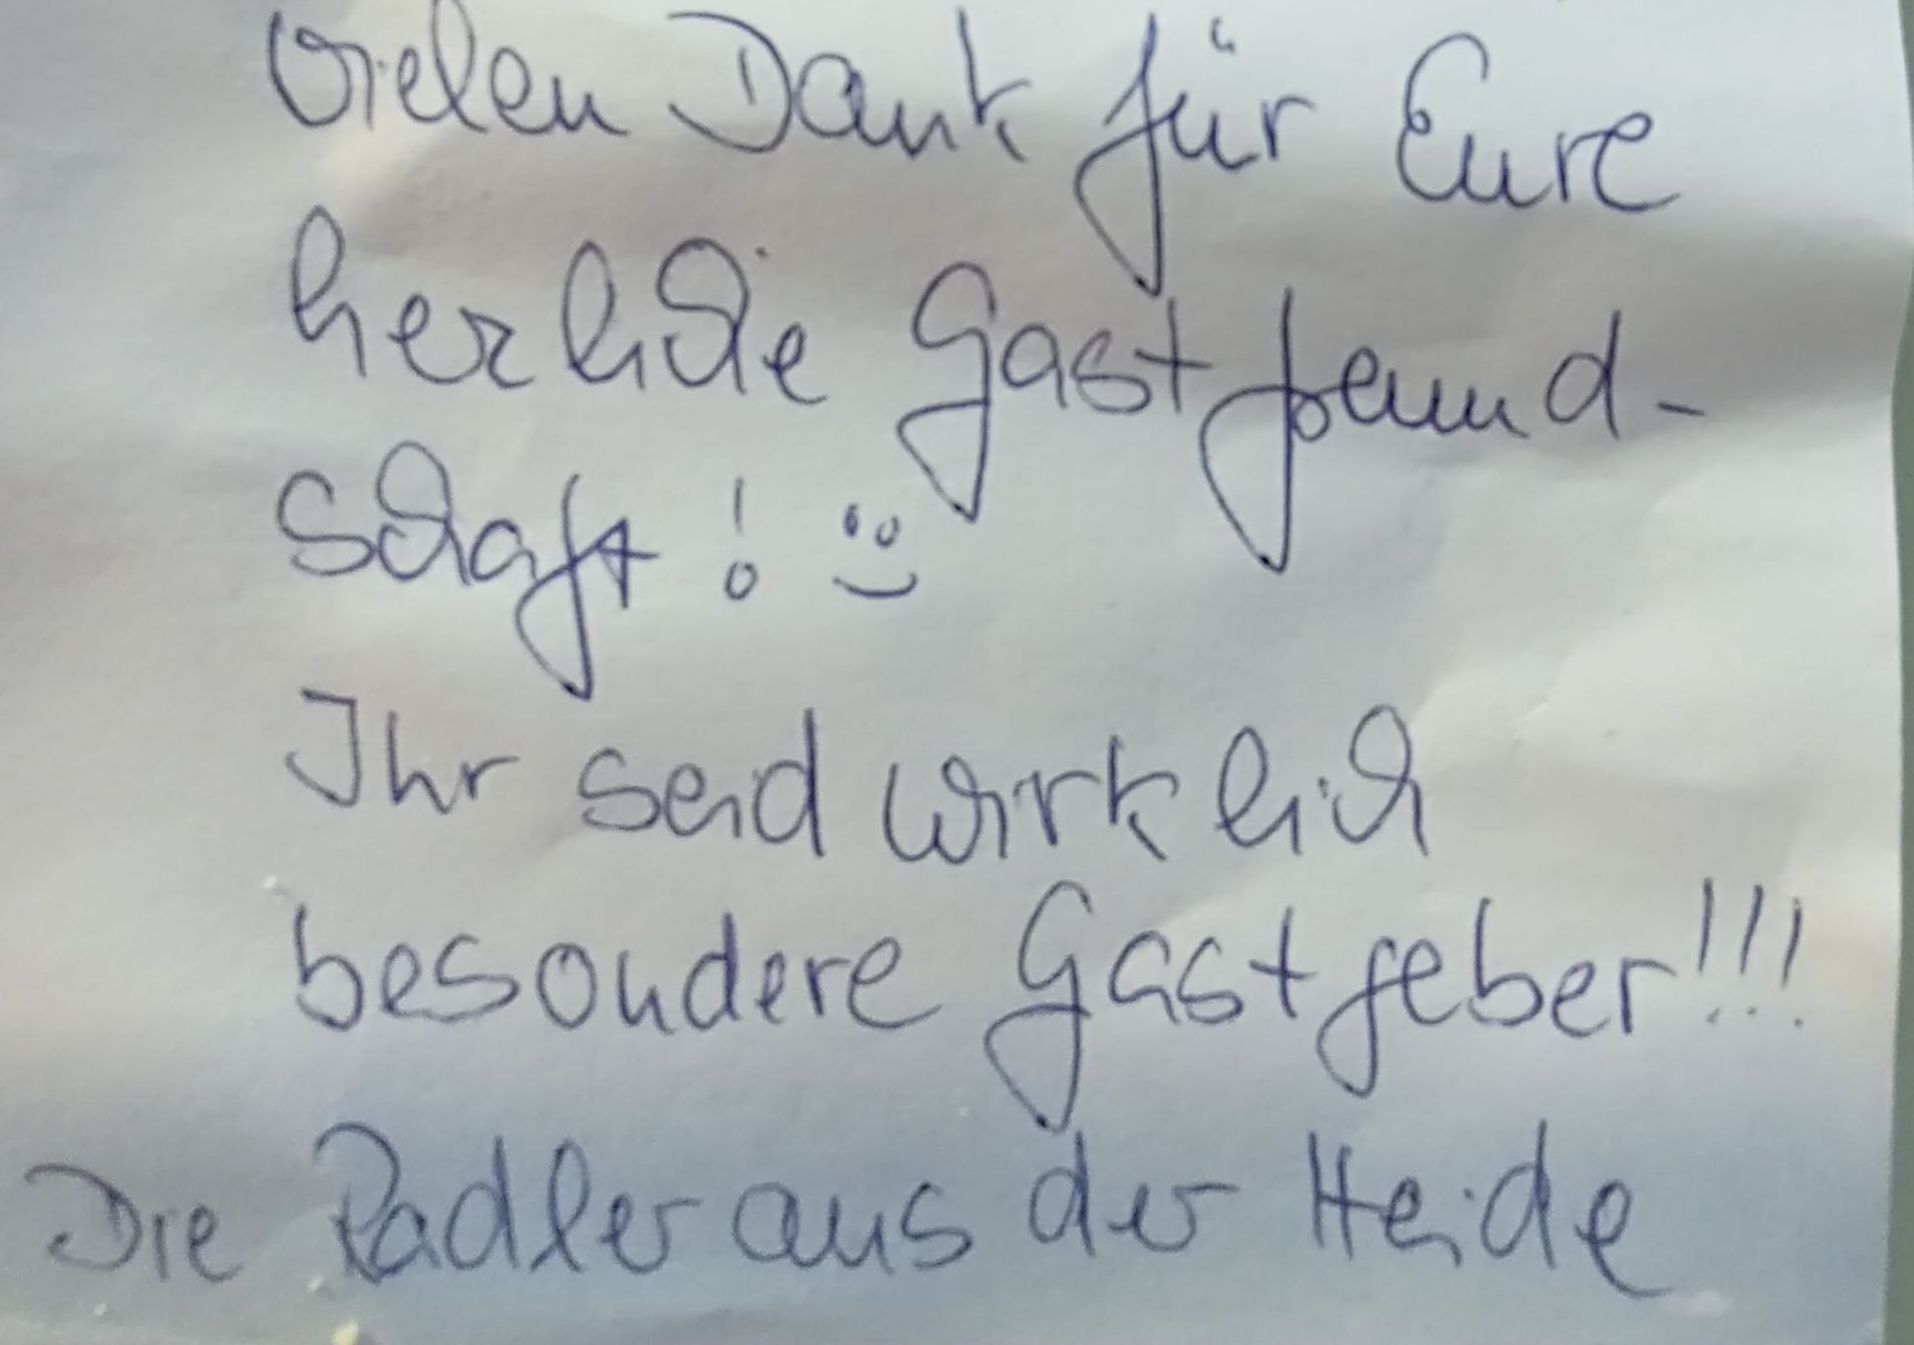 Vielen Dank für Eure
herzliche Gastfreund-
schaft! :)
Ihr seid wirklich
besondere Gastgeber!!!
Die Radler aus der Heide